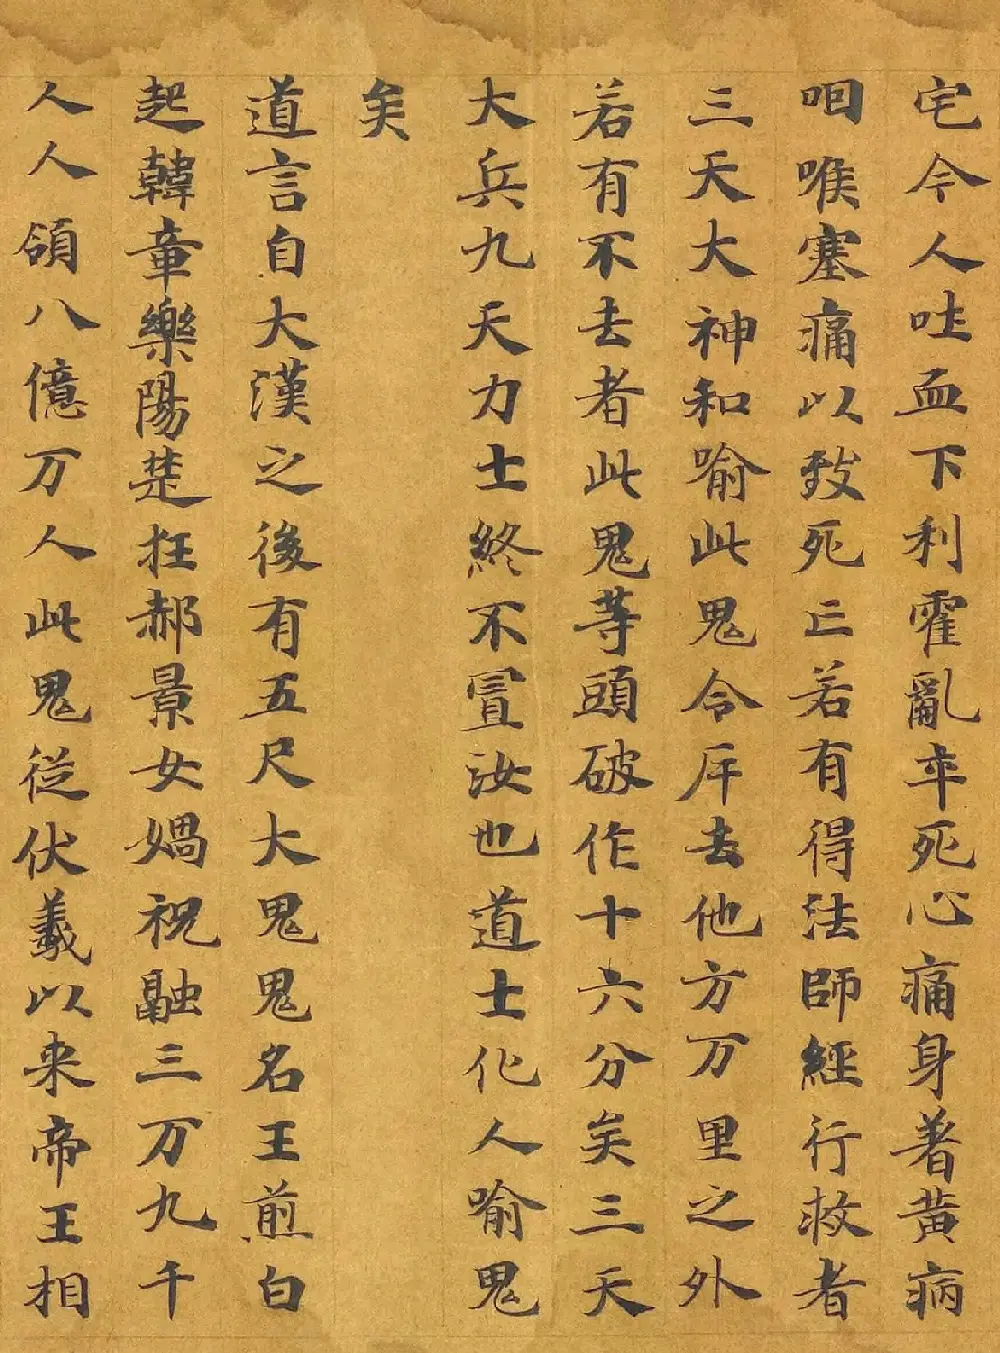 宅令人吐血下利霍亂卒死心痛身著黃病
咽喉塞痛以致死亡若有得法師經行救者
三天大神和喻此鬼令斥去他方万里之外
若有不去者此鬼等頭破作十六分矣三天
大兵九天力士終不置汝也道士化人喻鬼
矣
道言自大漢之後有五尺大鬼鬼名王煎白
起韓章樂陽楚狂郝景女媧祝融三万九千
人人領八億万人此鬼從伏羲以来帝王相